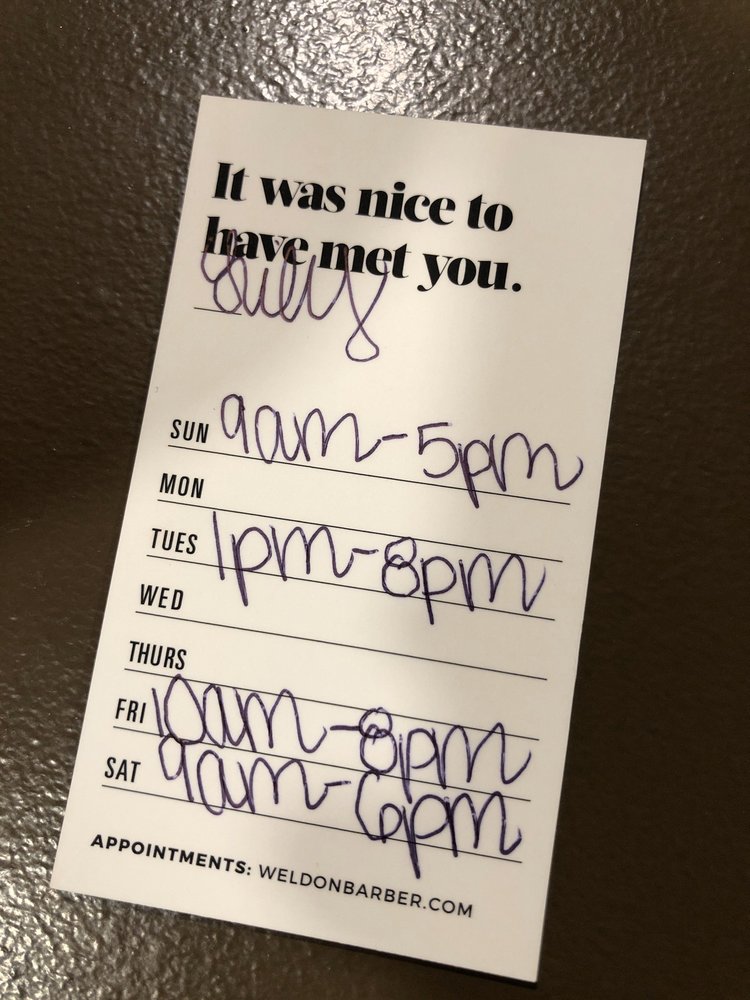 It was nice to
have met you.
SUN 9am-5pm
MON
TUES 1pm-8pm
WED
THURS
FRI 10am-8pm
SAT 9am-6pm
APPOINTMENTS: WELDONBARBER.COM